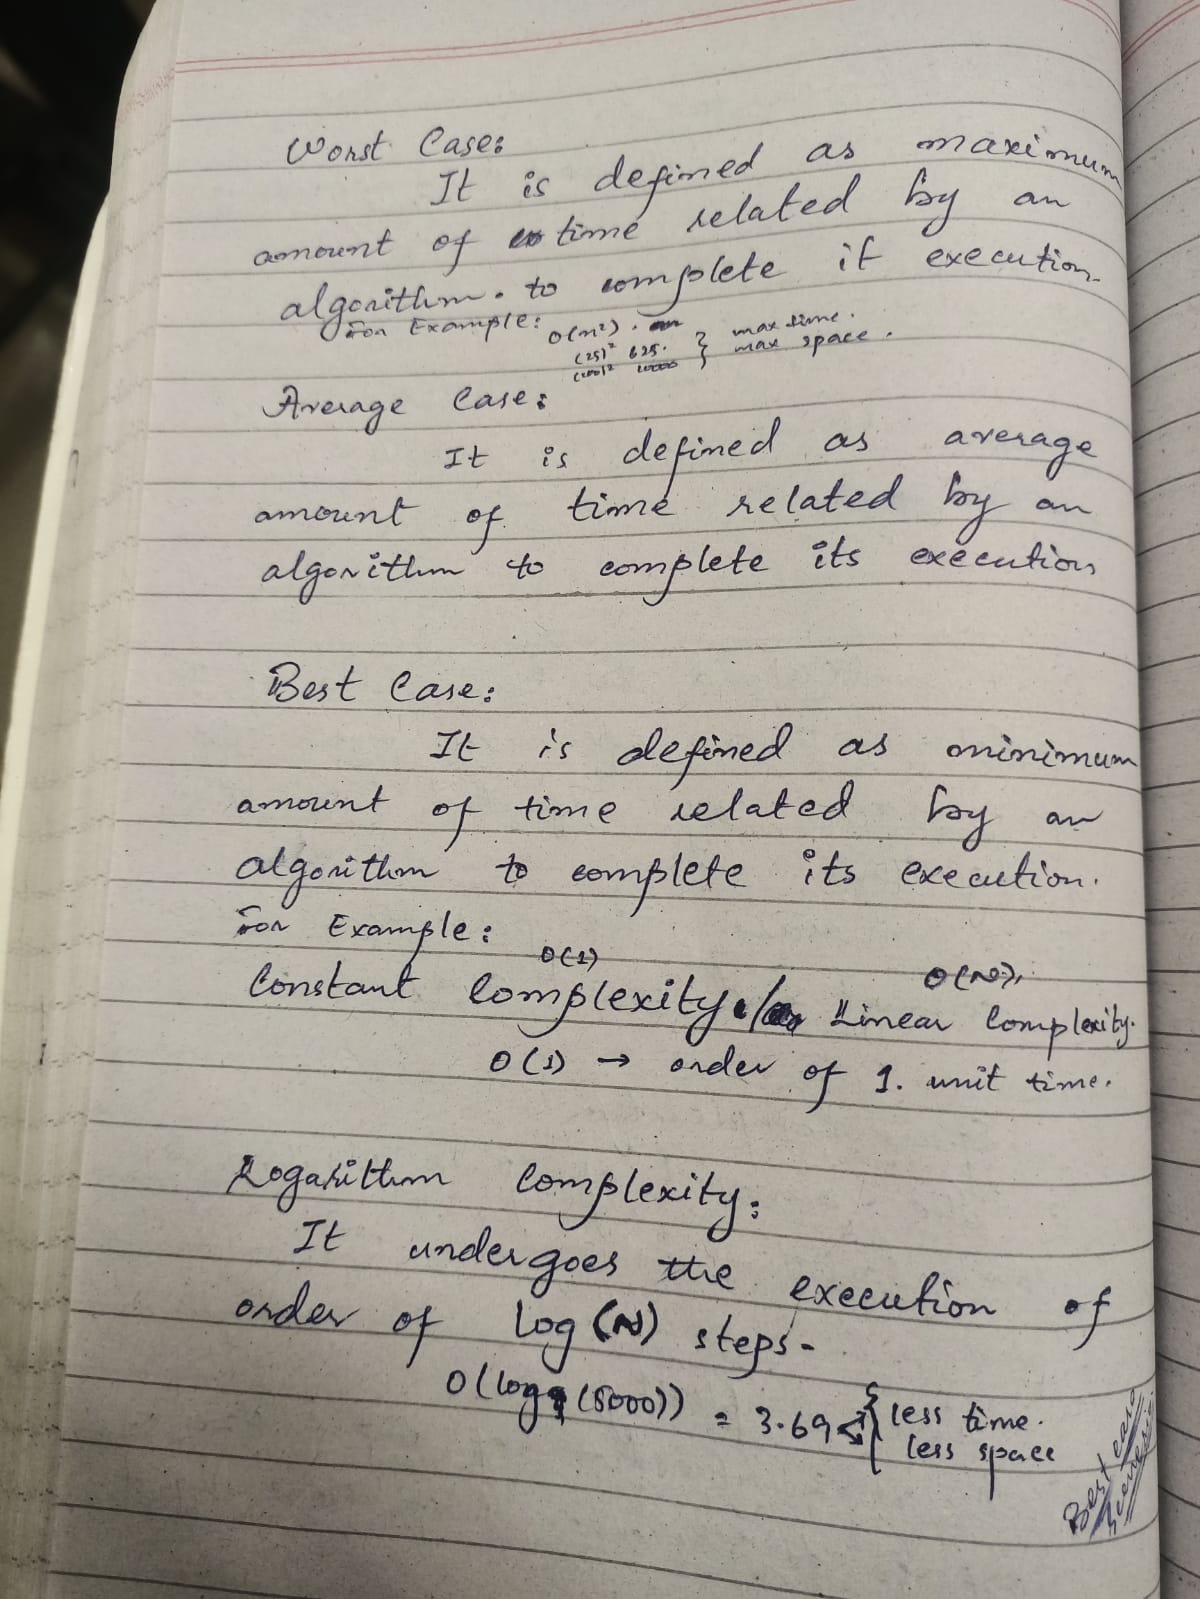 Worst Case:
It is defined as maximum
amount of time related by an
algorithm. to complete it execution.
For Example: O(n²).
(25)² 625. } max time.
(100)² 10000 max space.
Average Case:
It is defined as average
amount of time related by an
algorithm to complete its execution
Best Case:
It is defined as minimum
amount of time related by an
algorithm to complete its execution.
For Example:
O(1) O(N).
Constant Complexity. / Linear Complexity.
O(1) → order of 1. unit time.
Logarithm Complexity:
It undergoes the execution of
order of log (N) steps.
O(log (5000)) = 3.69 { less time.
less space
Best case